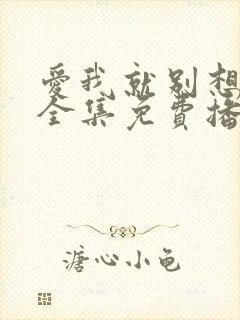 爱我就别想
全集免費播
溏心小龟